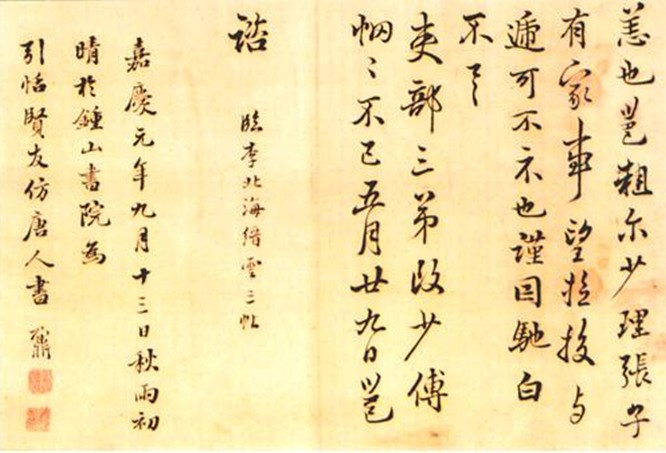 恙也邕粗尔少理張子
有家事望按投与
遞可不示也謹因馳白
不具
吏部三弟改少傅
惘〻不已五月廿九日邕
諮
臨李北海縉雲三帖
嘉慶元年九月十三日秋雨初
晴於鍾山書院為
引恬賢友仿唐人書 鼐